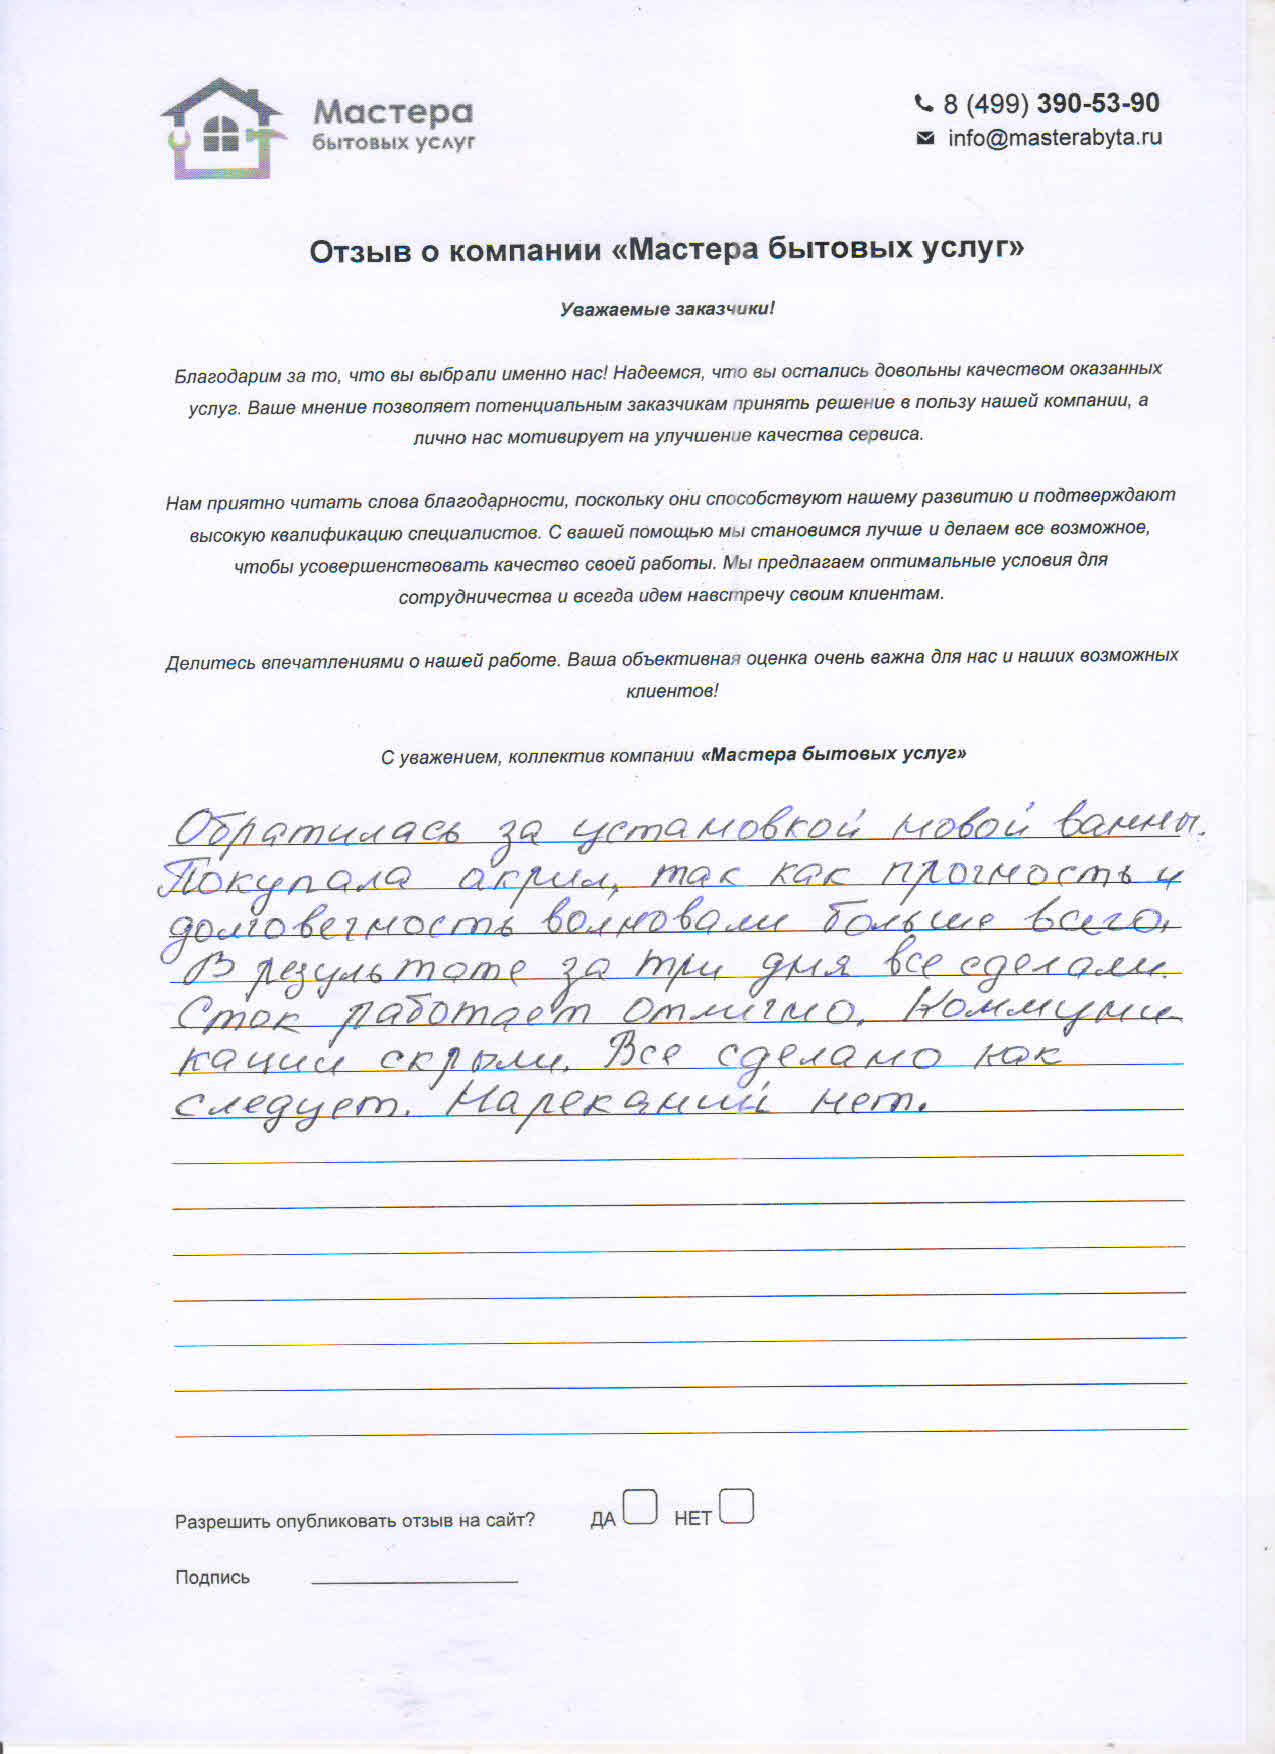 Мастера
бытовых услуг
8 (499) 390-53-90
info@masterabyta.ru
Отзыв о компании «Мастера бытовых услуг»
Уважаемые заказчики!
Благодарим за то, что вы выбрали именно нас! Надеемся, что вы остались довольны качеством оказанных
услуг. Ваше мнение позволяет потенциальным заказчикам принять решение в пользу нашей компании, а
лично нас мотивирует на улучшение качества сервиса.
Нам приятно читать слова благодарности, поскольку они способствуют нашему развитию и подтверждают
высокую квалификацию специалистов. С вашей помощью мы становимся лучше и делаем все возможное,
чтобы усовершенствовать качество своей работы. Мы предлагаем оптимальные условия для
сотрудничества и всегда идем навстречу своим клиентам.
Делитесь впечатлениями о нашей работе. Ваша объективная оценка очень важна для нас и наших возможных
клиентов!
С уважением, коллектив компании «Мастера бытовых услуг»
Обратилась за установкой новой ванны.
Покупала акрил, так как прочность и
долговечность волновали больше всего.
В результате за три дня все сделали.
Сток работает отлично. Коммуни-
кации скрыли. Все сделано как
следует. Нареканий нет.
Разрешить опубликовать отзыв на сайт? ДА НЕТ
Подпись